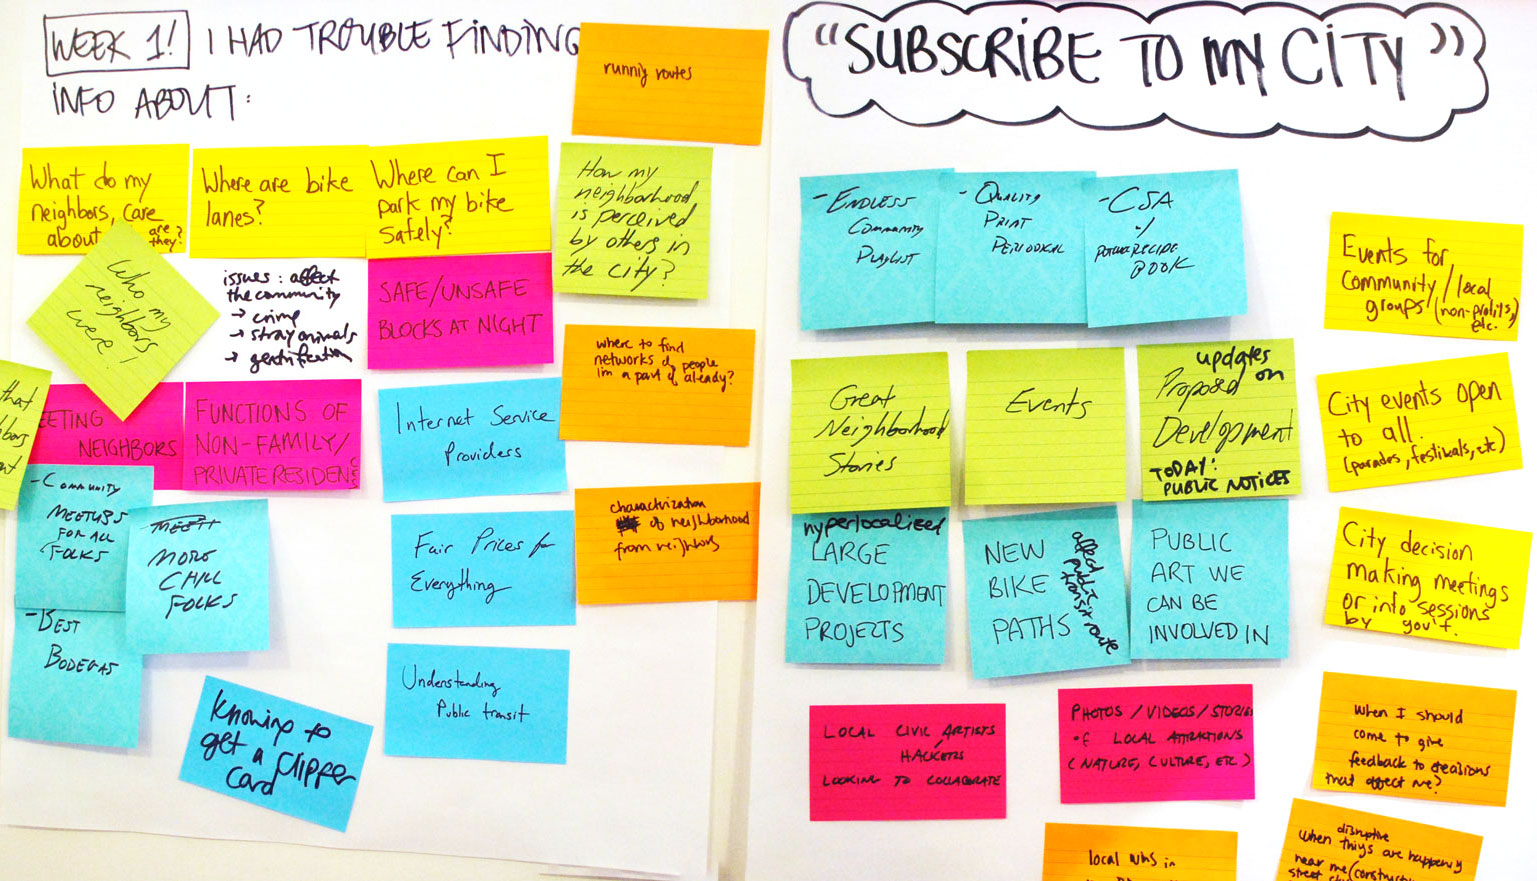 WEEK 1! I HAD TROUBLE FINDING
INFO ABOUT:
running routes
What do my
neighbors, care
about
are
they?
Where are bike
lanes?
Where can I
park my bike
safely?
How my
neighborhood
is perceived
by others in
the city?
Who my
neighbors
were!
issues: affect
the community
→ crime
→ stray animals
→ gentrification
SAFE/UNSAFE
BLOCKS AT NIGHT
where to find
networks of people
I'm a part of already?
that
EETING
NEIGHBORS
FUNCTIONS OF
NON-FAMILY/
PRIVATE RESIDENCES
Internet Service
Providers
- COMMUNITY
MEETUPS
FOR ALL
FOLKS
MEET
MORE
CHILL
FOLKS
- BEST
BODEGAS
Fair Prices for
Everything
characterization
of neighborhood
from neighbors
Understanding
Public transit
Knowing to
get a Clipper
Card
"SUBSCRIBE TO MY CITY"
- ENDLESS
COMMUNITY
PLAYLIST
- QUALITY
PRINT
PERIODICAL
- CSA
w/
RECIPE
BOOK
Events for
Community/local
groups (non-profits,
etc.
Great
Neighborhood
Stories
Events
updates
on
Proposed
Development
TODAY:
PUBLIC NOTICES
City events open
to all.
(parades, festivals, etc)
hyperlocalized
LARGE
DEVELOPMENT
PROJECTS
NEW
BIKE
PATHS
affect
public
transit route
PUBLIC
ART WE
CAN BE
INVOLVED IN
City decision
making meetings
or info sessions
by gov't.
LOCAL CIVIC ARTISTS
/
HACKERS
LOOKING TO COLLABORATE
PHOTOS / VIDEOS / STORIES
OF LOCAL ATTRACTIONS
(NATURE, CULTURE, ETC)
When I should
come to give
feedback to decisions
that affect me?
local
in
disruptive
when things are happening
near me (construction
street